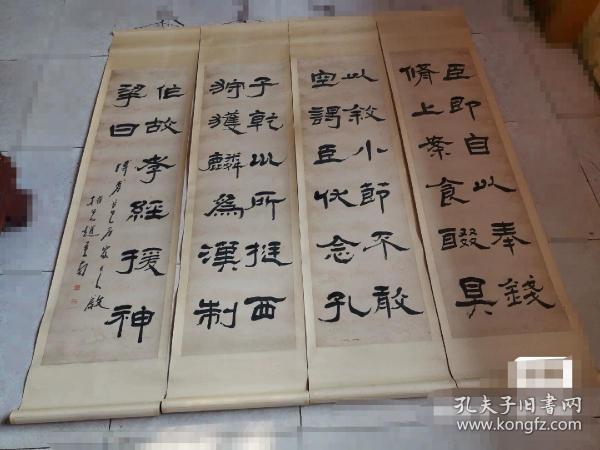 臣即自以奉錢
脩上案食醊具
以敘小節不敢
空謁臣伏念孔
子乾川所挺西
狩獲麟爲漢制
作故孝經援神
挈曰
孔夫子旧书网
www.kongfz.com